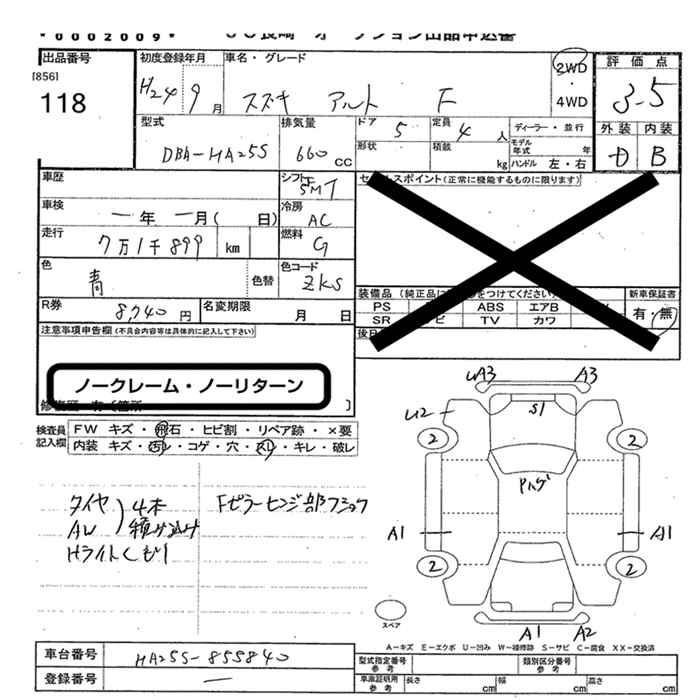 *0002009*
JU長崎 オークション出品申込書
出品番号
[856]
118
初度登録年月
H24 9月
車名・グレード
スズキ アルト F
2WD
・
4WD
評価点
3.5
外装 内装
D B
型式
DBA-HA25S
排気量
660 cc
ドア 5
定員 4 人
形状
積載 kg
ディーラー・並行
モデル年式 年
ハンドル 左・右
車歴
シフト
5MT
車検
一年 一月( 日)
冷房
AC
走行
7万1千899 km
燃料
G
色
青
色替
色コード
ZKS
R券
8,740円
名変期限
月 日
セールスポイント(正常に機能するものに限ります)
装備品(純正品に
をつけてください)
新車保証書
有・無
PS ABS エアB
SR ビ TV カワ
後日
注意事項申告欄(不具合内容等は具体的に記入して下さい)
ノークレーム・ノーリターン
修復歴 有(箇所 )
検査員記入欄
FW キズ・飛石・ヒビ割・リペア跡・×要
内装 キズ・汚レ・コゲ・穴・スレ・キレ・破レ
タイヤ
AW
4本
積み込み
Hライトくもり
Fピラーヒンジ部フショク
UA3 A3
U2
S1
2 2
Pハゲ
A1 A1
2 2
スペア
A1 A2
A-キズ E-エクボ U-凹み W-補修跡 S-サビ C-腐食 XX-交換済
車台番号
HA25S-855840
登録番号
―
型式指定番号
参考
類別区分番号
参考
車庫証明用
参考
長さ cm
幅 cm
高さ cm